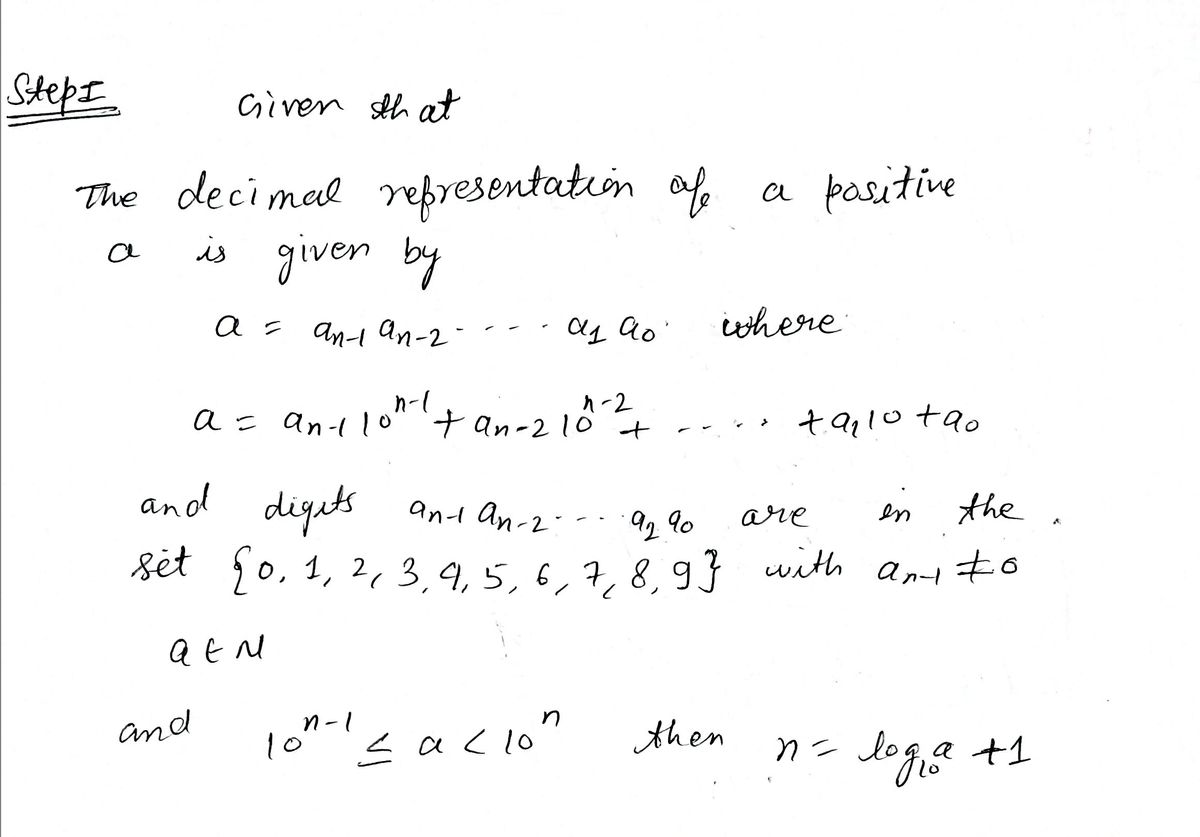 Step I
Given that
The decimal representation of a positive
a is given by
a = aₙ₋₁ aₙ₋₂ - - - - a₁ a₀. where
a = aₙ₋₁ 10ⁿ⁻¹ + aₙ₋₂ 10ⁿ⁻² + - - - - + a₁10 + a₀
and digits aₙ₋₁ aₙ₋₂ - - - a₂ a₀ are in the
set {0, 1, 2, 3, 4, 5, 6, 7, 8, 9} with aₙ₋₁ ≠ 0
a ∈ N
and 10ⁿ⁻¹ ≤ a < 10ⁿ then n = log₁₀a + 1